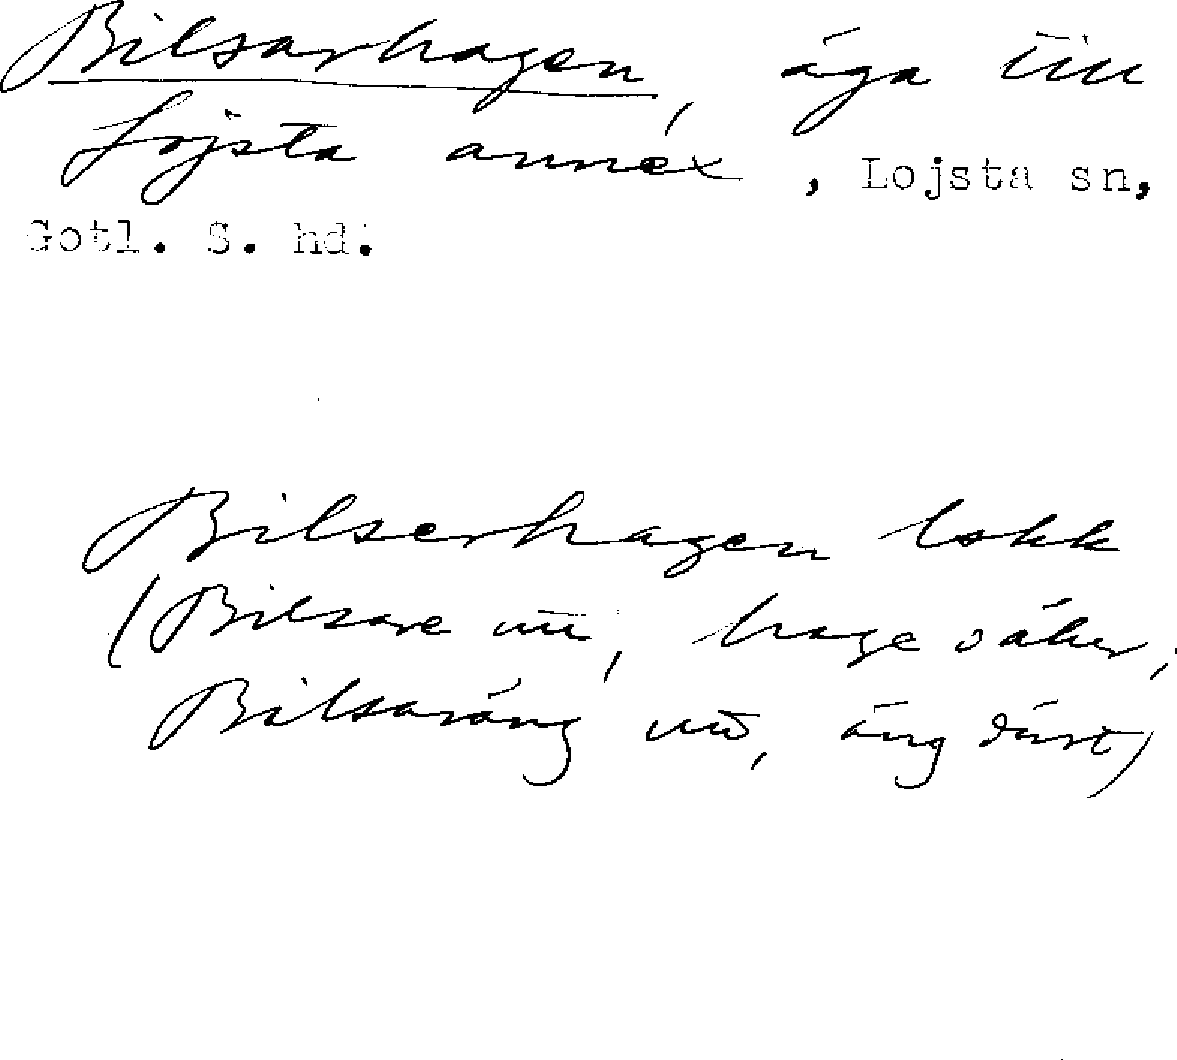 Bilsarhagen, äga till
Lojsta annex, Lojsta sn,
Gotl. S. hd.
Bilserhagen Lskk
(Bilsare uti, hage söder,
Bilsaräng utö, äng